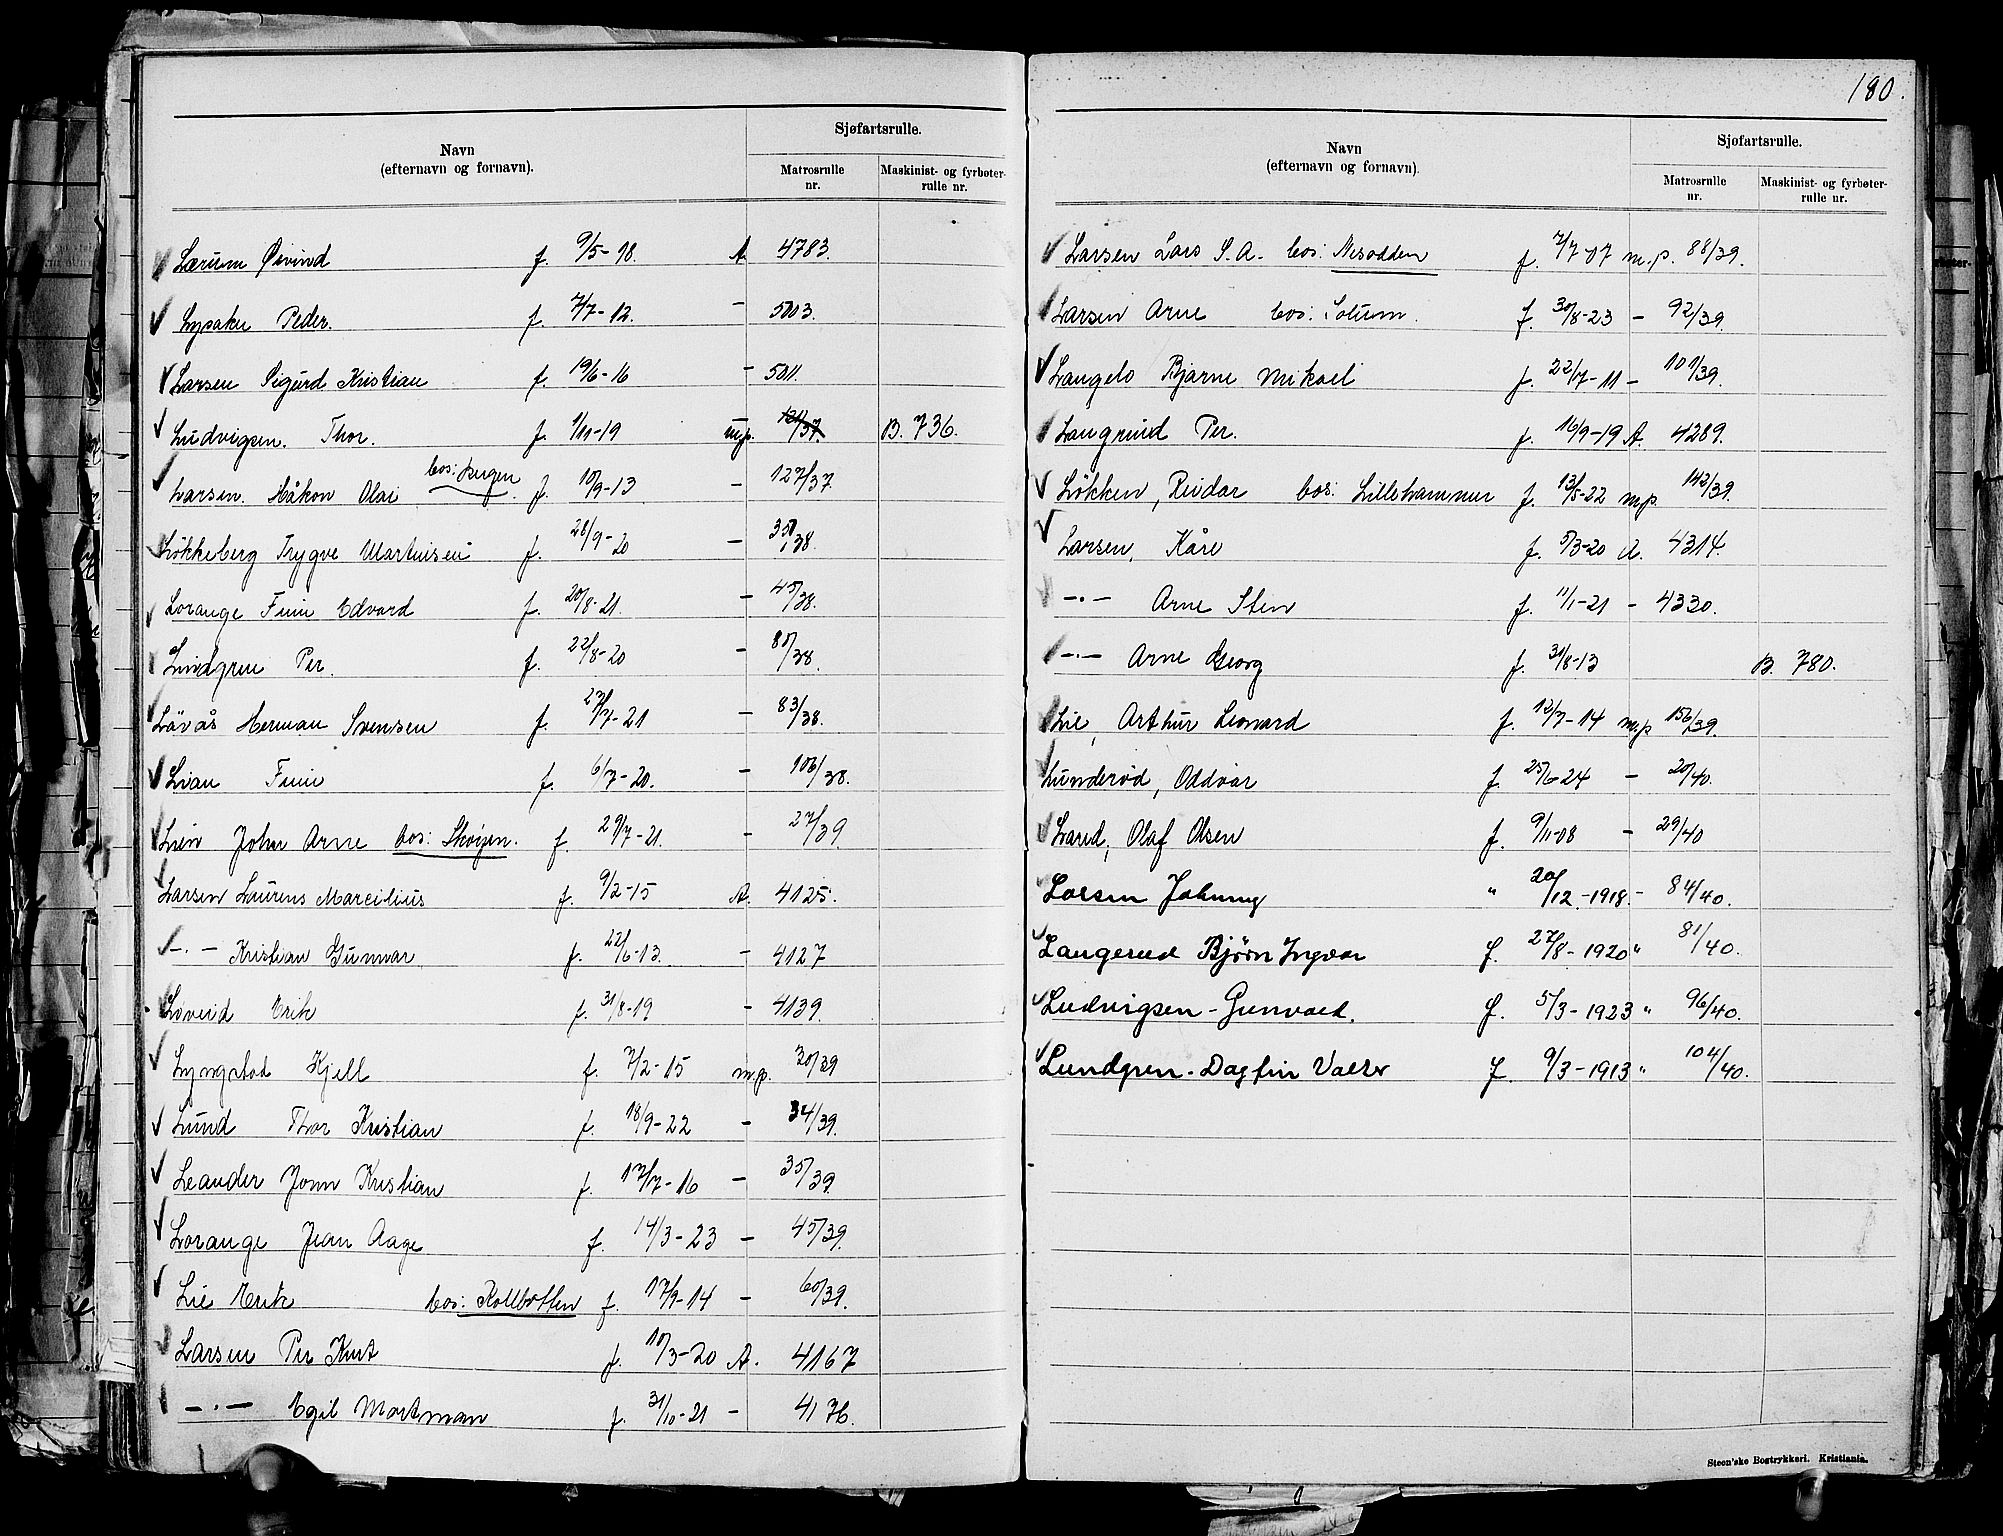 Navn
(efternavn og fornavn).
Sjøfartsrulle.
Matrosrulle nr.
Maskinist- og fyrbøter-rulle nr.
Lærum Øivind f. 9/5-18. A. 4783.
Lysaker Peder. f. 7/7-12. — 5003.
Larsen Sigurd Kristian f. 19/6-16 — 5011.
Ludvigsen. Thor. f. 1/11-19 m.p. 121/37. B. 736.
Larsen. Håkon Olai bos: f. 10/9-13 — 127/37.
Løkkeberg Trygve Martinsen f. 28/9-20 — 38.
Lorange Finn Edvard f. 20/8-21. — 45/38.
Lindgren Per. f. 22/8-20 — 80/38.
Låvås Herman Svensen f. 27/7-21 — 83/38.
Lian Finn f. 6/7-20. — 106/38.
Lien John Arne bos: Skøyen. f. 29/7-21. — 27/39
Larsen Laurens Marcilius f. 9/2-15 A. 4125.
—·— Kristian Gunnar f. 22/6-13. — 4127
Løverid Erik f. 31/8-19 — 4139.
Lyngstad Kjell f. 7/2-15 m.p. 20/39
Lund Thor Kristian f. 18/9-22 — 34/39.
Leander John Kristian f. 17/7-16 — 35/39.
Lorange Jean Aage f. 14/3-23 — 45/39.
Lie Erik bos: Kolbotten f. 17/9-14 — 60/39.
Larsen Per Kurt f. 10/3-20 A. 4167
—·— Egil Martman f. 31/10-21 — 4176.
180.
Navn
(efternavn og fornavn).
Sjøfartsrulle.
Matrosrulle nr.
Maskinist- og fyrbøter-rulle nr.
Larsen Lars S. A. bos: Nesodden f. 7/7-07 m.p. 88/39.
Larsen Arne bos: Solum. f. 30/8-23 — 92/39.
Langelo Bjarne Mikael f. 22/7-11 — 101/39.
Langrind Per. f. 16/9-19 A. 4289.
Løkken, Reidar bos: Lillehammer f. 13/5-22 m.p. 142/39.
Larsen, Kåre f. 5/3-20 A. 4314.
—·— Arne Sten f. 11/1-21 — 4330.
—·— Arne Georg f. 31/8-13 B. 780.
Lie, Arthur Leonard f. 12/7-14 m.p 156/39.
Lunderød, Oddvar f. 25/6 24 — 20/40.
Lared, Olaf Olsen f. 9/11-08 — 29/40
Larsen Johnny " 20/12.-1918.- 84/40.
Langerud Bjørn Ingvar f. 27/8-1920 " 81/40.
Ludvigsen - Gunvald. f. 5/3-1923 " 96/40.
Lundgren - Dagfin Valter f. 9/3-1913 " 104/40.
Steen'ske Bogtrykkeri. Kristiania.